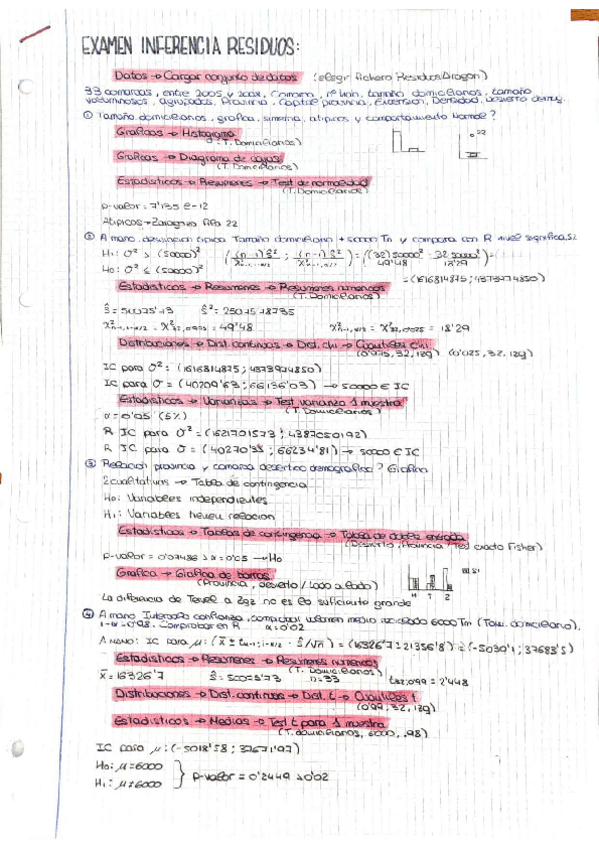 EXAMEN INFERENCIA RESIDUOS:
Datos → Cargar conjunto de datos (elegir fichero ResiduosAragon)
33 comarcas, entre 2005 y 2008, Comarca, nº hab, tamaño domiciliarios, tamaño
voluminosos, agrupados, Provincia, Capital provincia, Extensión, Densidad, desierto demog.
① Tamaño domiciliarios, grafica, simetria, atipicos y comportamiento Normal?
Graficas → Histograma
(T. Domiciliarios)
Graficas → Diagrama de cajas
(T. Domiciliarios)
Estadisticos → Resumenes → Test de normalidad
(T. Domiciliarios)
p-valor = 7'135 e-12
Atipicos → Zaragoza fila 22
② A mano, desviacion tipica Tamaño domiciliario +50000 Tn y compara con R nivel significa.5%
H₁: σ² > (50000)²
H₀: σ² ≤ (50000)²
= (1616814875; 4373974850)
Estadisticos → Resumenes → Resumenes numericos
(T. Domiciliarios)
49'48
18'29
Distribuciones → Dist. continuas → Dist. chi → Cuantiles Chi
(0'975, 32, izq) (0'025, 32, izq)
IC para σ² = (1616814875; 4373974850)
IC para σ = (40209'63; 66136'03) → 50000 ∈ IC
Estadisticos → Varianzas → Test varianza 1 muestra
(T. Domiciliarios)
α = 0'05 (5%)
R IC para σ² = (1621701573; 4387050192)
R IC para σ = (40270'35; 66234'81) → 50000 ∈ IC
③ Relacion provincia y comarca desertico demografica? Grafica
2 cualitativas → Tabla de contingencia
H₀: Variables independientes
H₁: Variables tienen relacion
Estadisticos → Tablas de contingencia → Tabla de doble entrada
(Desierto, Provincia, Test exacto Fisher)
p-valor = 0'07486 > α = 0'05 → H₀
Grafica → Grafica de barras
(Provincia, desierto / Lado a lado)
H T Z
La diferencia de Teruel a Zgz no es lo suficiente grande
④ A mano Intervalo confianza, comprobar volumen medio recogido 6000 Tm (Tam. domiciliario),
1-α = 0'98. Comprobar en R α = 0'02
A mano: IC para μ: = (16326'7 ± 21356'8) = (-5030'1; 37683'5)
Estadisticos → Resumenes → Resumenes numericos
(T. Domiciliarios)
x̄ = 16326'7 n = 33 t₃₂;₀,₉₉ = 2'448
Distribuciones → Dist. continuas → Dist. t → Cuantiles t
(0'99, 32, izq)
Estadisticos → Medias → Test t para 1 muestra
(T. domiciliarios, 6000, .98)
IC para μ: (-5018'58; 37671'97)
H₀: μ = 6000
H₁: μ ≠ 6000
p-valor = 0'2449 > 0'02